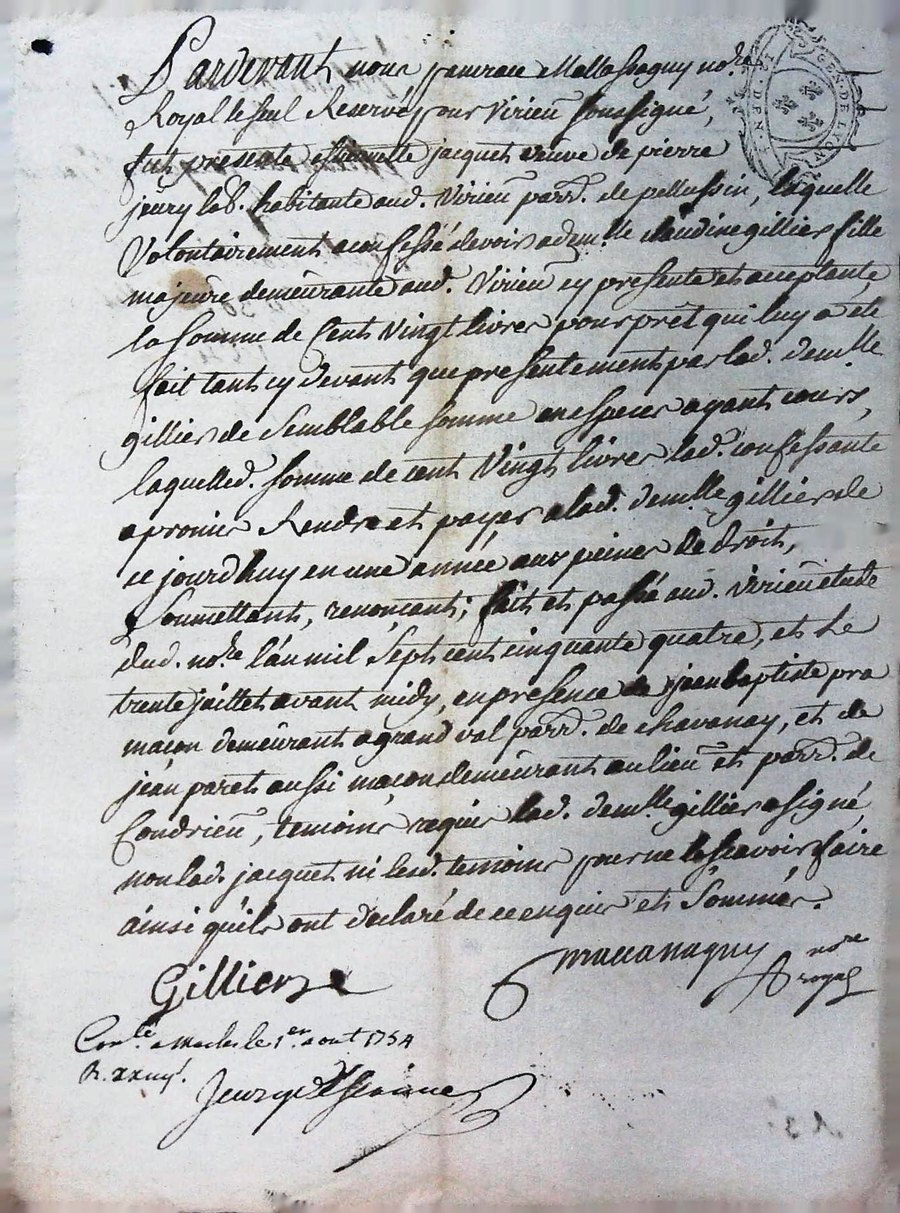 GEN. DE LYON
Pardevant nous Mattassagny no.re
Royal le seul Reservé pour Virieu soussigné,
fut presente jacquet veuve de pierre
jeury lab. habitante aud. Virieu parr. de pellussin, laquelle
Volontairement a confessé devoir a dem.lle claudine gillier fille
majeure demeurante aud. Virieu cy presente et acceptante,
la somme de Cent Vingt livres pour prêt qui luy a été
fait tant cy devant que presentement par lad. demlle
gillier de Semblable somme en especes ayant cours,
laquelled. somme de cent Vingt livres lad. confessante
a promis Rendre et payer a lad. demlle gillier de
ce jourdhuy en une année aux peines de droit,
Soumettant, renonçant; fait et passé aud. Virieu etude
dud. no.re l'an mil Sept cent cinquante quatre, et Le
trente juillet avant midy, en presence de jean baptiste pra
maçon demeurant a grand val parr. de chavanay, et de
jean paret aussi maçon demeurant au lieu et parr. de
Condrieu, temoins requis lad. demlle gillier a signé,
non lad. jacquet ni lesd. temoins pour ne le sçavoir faire
ainsi qu'ils ont declaré de ce enquis et Sommés.
Gillier
no.re
royal
Con.lé a Maclas le 1er aout 1754
R.